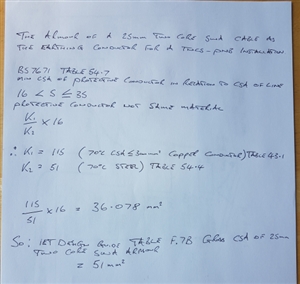 THE ARMOUR OF A 25mm TWO CORE SWA CABLE AS
THE EARTHING CONDUCTOR FOR A INSTALLATION
BS7671 TABLE 54.7
MIN CSA OF PROTECTIVE CONDUCTOR IN RELATION TO CSA OF LINE
16 < S ≤ 35
PROTECTIVE CONDUCTOR NOT SAME MATERIAL
K₁/K₂ × 16
∴ K₁ = 115 (70°C CSA ≤ 300mm² COPPER CONDUCTOR) TABLE 43.1
K₂ = 51 (70°C STEEL) TABLE 54.4
115/51 × 16 = 36.078 mm²
SO: IET DESIGN GUIDE TABLE F.7B GIVES CSA OF 25mm
TWO CORE SWA ARMOUR
= 51 mm²